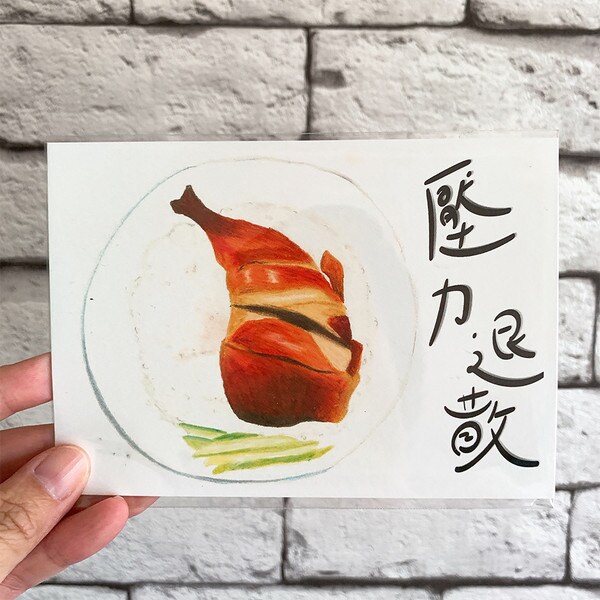 壓力退散